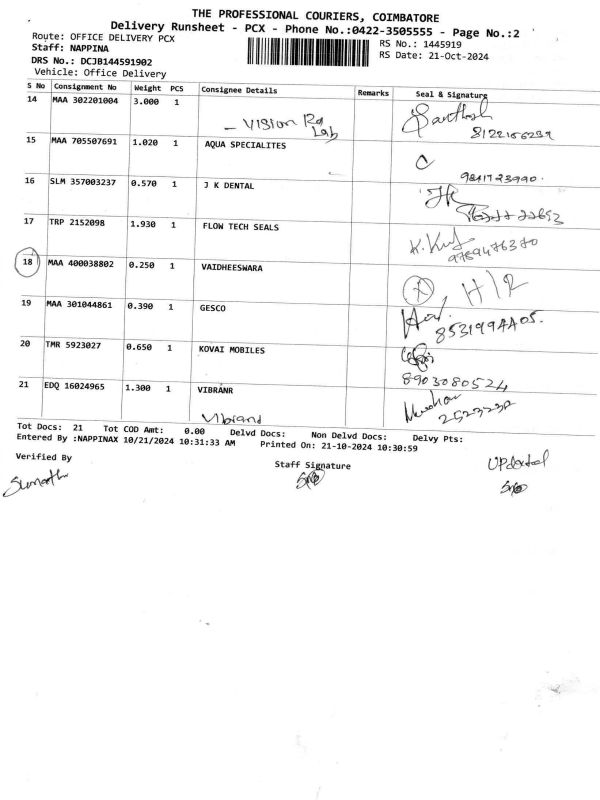 THE PROFESSIONAL COURIERS, COIMBATORE
Delivery Runsheet - PCX - Phone No.:0422-3505555 - Page No.:2
Route: OFFICE DELIVERY PCX
RS No.: 1445919
Staff: NAPPINA
RS Date: 21-Oct-2024
DRS No.: DCJB144591902
Vehicle: Office Delivery
S No Consignment No Weight PCS Consignee Details Remarks Seal & Signature
14 MAA 302201004 3.000 1 Santhosh
- Vision Rg Lab
8122166239
15 MAA 705507691 1.020 1 AQUA SPECIALITES
9841723990.
16 SLM 357003237 0.570 1 J K DENTAL
17 TRP 2152098 1.930 1 FLOW TECH SEALS
9789476370
18 MAA 400038802 0.250 1 VAIDHEESWARA
19 MAA 301044861 0.390 1 GESCO
20 TMR 5923027 0.650 1 KOVAI MOBILES
8903080524
21 EDQ 16024965 1.300 1 VIBRANR
Vibrand
2523232
Tot Docs: 21 Tot COD Amt: 0.00 Delvd Docs: Non Delvd Docs: Delvy Pts:
Entered By :NAPPINAX 10/21/2024 10:31:33 AM Printed On: 21-10-2024 10:30:59
Verified By
Staff Signature
UPdated
Sumathi